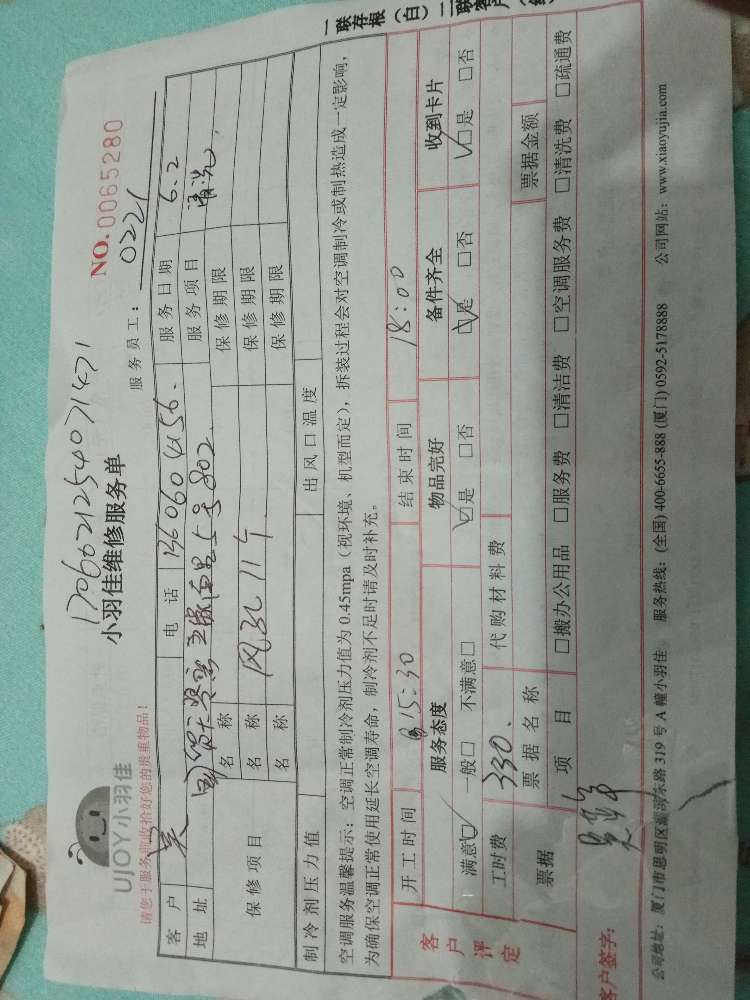 一联存根(白)二联客户(红
UJOY小羽佳
请您于服务前收拾好您的贵重物品!
1706621254071471
小羽佳维修服务单
NO.0065280
服务员工: 0221
客户 吴 电话 服务日期 6.2
地址 5号802 服务项目 清洗
保修项目 名称 保修期限
名称 风312 11个 保修期限
名称 保修期限
制冷剂压力值 出风口温度
空调服务温馨提示:空调正常制冷剂压力值为 0.45mpa(视环境、机型而定),拆装过程会对空调制冷或制热造成一定影响,
为确保空调正常使用延长空调寿命,制冷剂不足时请及时补充。
开工时间 15:30 结束时间 18:00
客户评定 服务态度 物品完好 备件齐全 收到卡片
满意☑ 一般□ 不满意□ ☑是 □否 ☑是 □否 ☑是 □否
工时费 330. 代购材料费
票据 票据名称 票据金额
项目 □搬办公用品 □服务费 □清洁费 □空调服务费 □清洗费 □疏通费
客户签字:
公司地址:厦门市思明区湖滨东路 319 号 A 幢小羽佳 服务热线:(全国) 400-6655-888 (厦门) 0592-5178888 公司网站:www.xiaoyujia.com